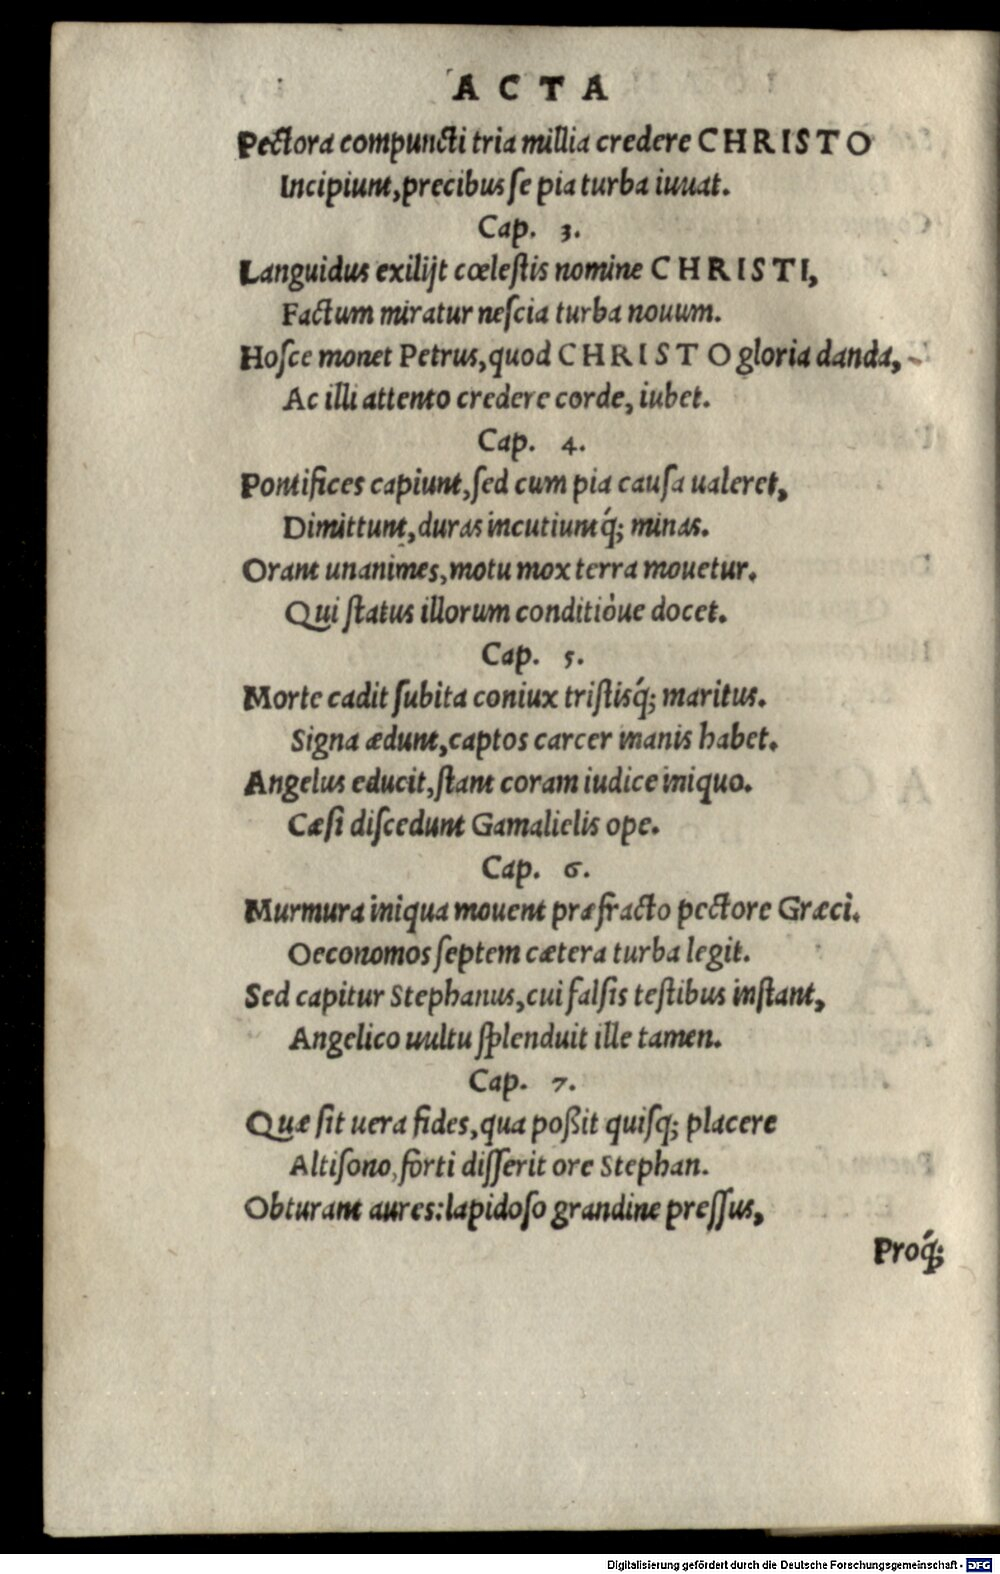 ACTA
Pectora compuncti tria millia credere CHRISTO
Incipiunt, precibus ſe pia turba iuuat.
Cap. 3.
Languidus exilijt cœleſtis nomine CHRISTI,
Factum miratur neſcia turba nouum.
Hoſce monet Petrus, quod CHRISTO gloria danda,
Ac illi attento credere corde, iubet.
Cap. 4.
Pontifices capiunt, ſed cum pia cauſa ualeret,
Dimittunt, duras incutiuntq́; minas.
Orant unanimes, motu mox terra mouetur.
Qui ſtatus illorum conditiòue docet.
Cap. 5.
Morte cadit ſubita coniux triſtisq́; maritus.
Signa ædunt, captos carcer inanis habet.
Angelus educit, ſtant coram iudice iniquo.
Cæſi diſcedunt Gamalielis ope.
Cap. 6.
Murmura iniqua mouent præfracto pectore Græci.
Oeconomos ſeptem cætera turba legit.
Sed capitur Stephanus, cui falſis teſtibus inſtant,
Angelico uultu ſplenduit ille tamen.
Cap. 7.
Quæ ſit uera fides, qua poßit quiſq; placere
Altiſono, forti diſſerit ore Stephan.
Obturant aures: lapidoſo grandine preſſus,
Proq́;
Digitalisierung gefördert durch die Deutsche Forschungsgemeinschaft - DFG